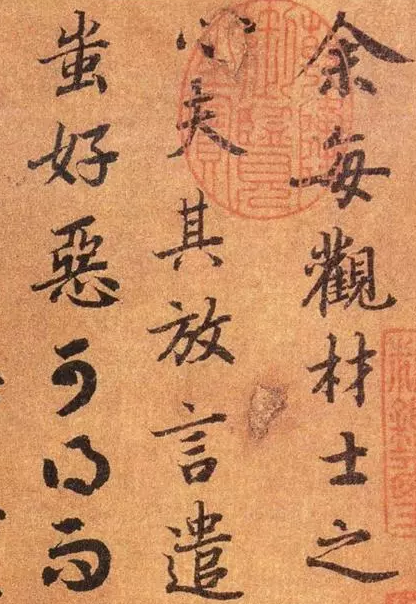 余每觀材士之
心夫其放言遣
蚩好惡可得而